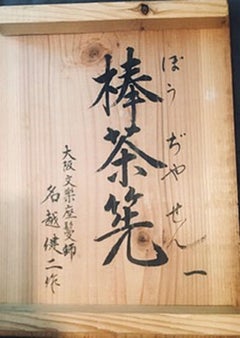 ぼうぢやせん一
棒茶筅
大阪文楽座鬘師
名越健二作